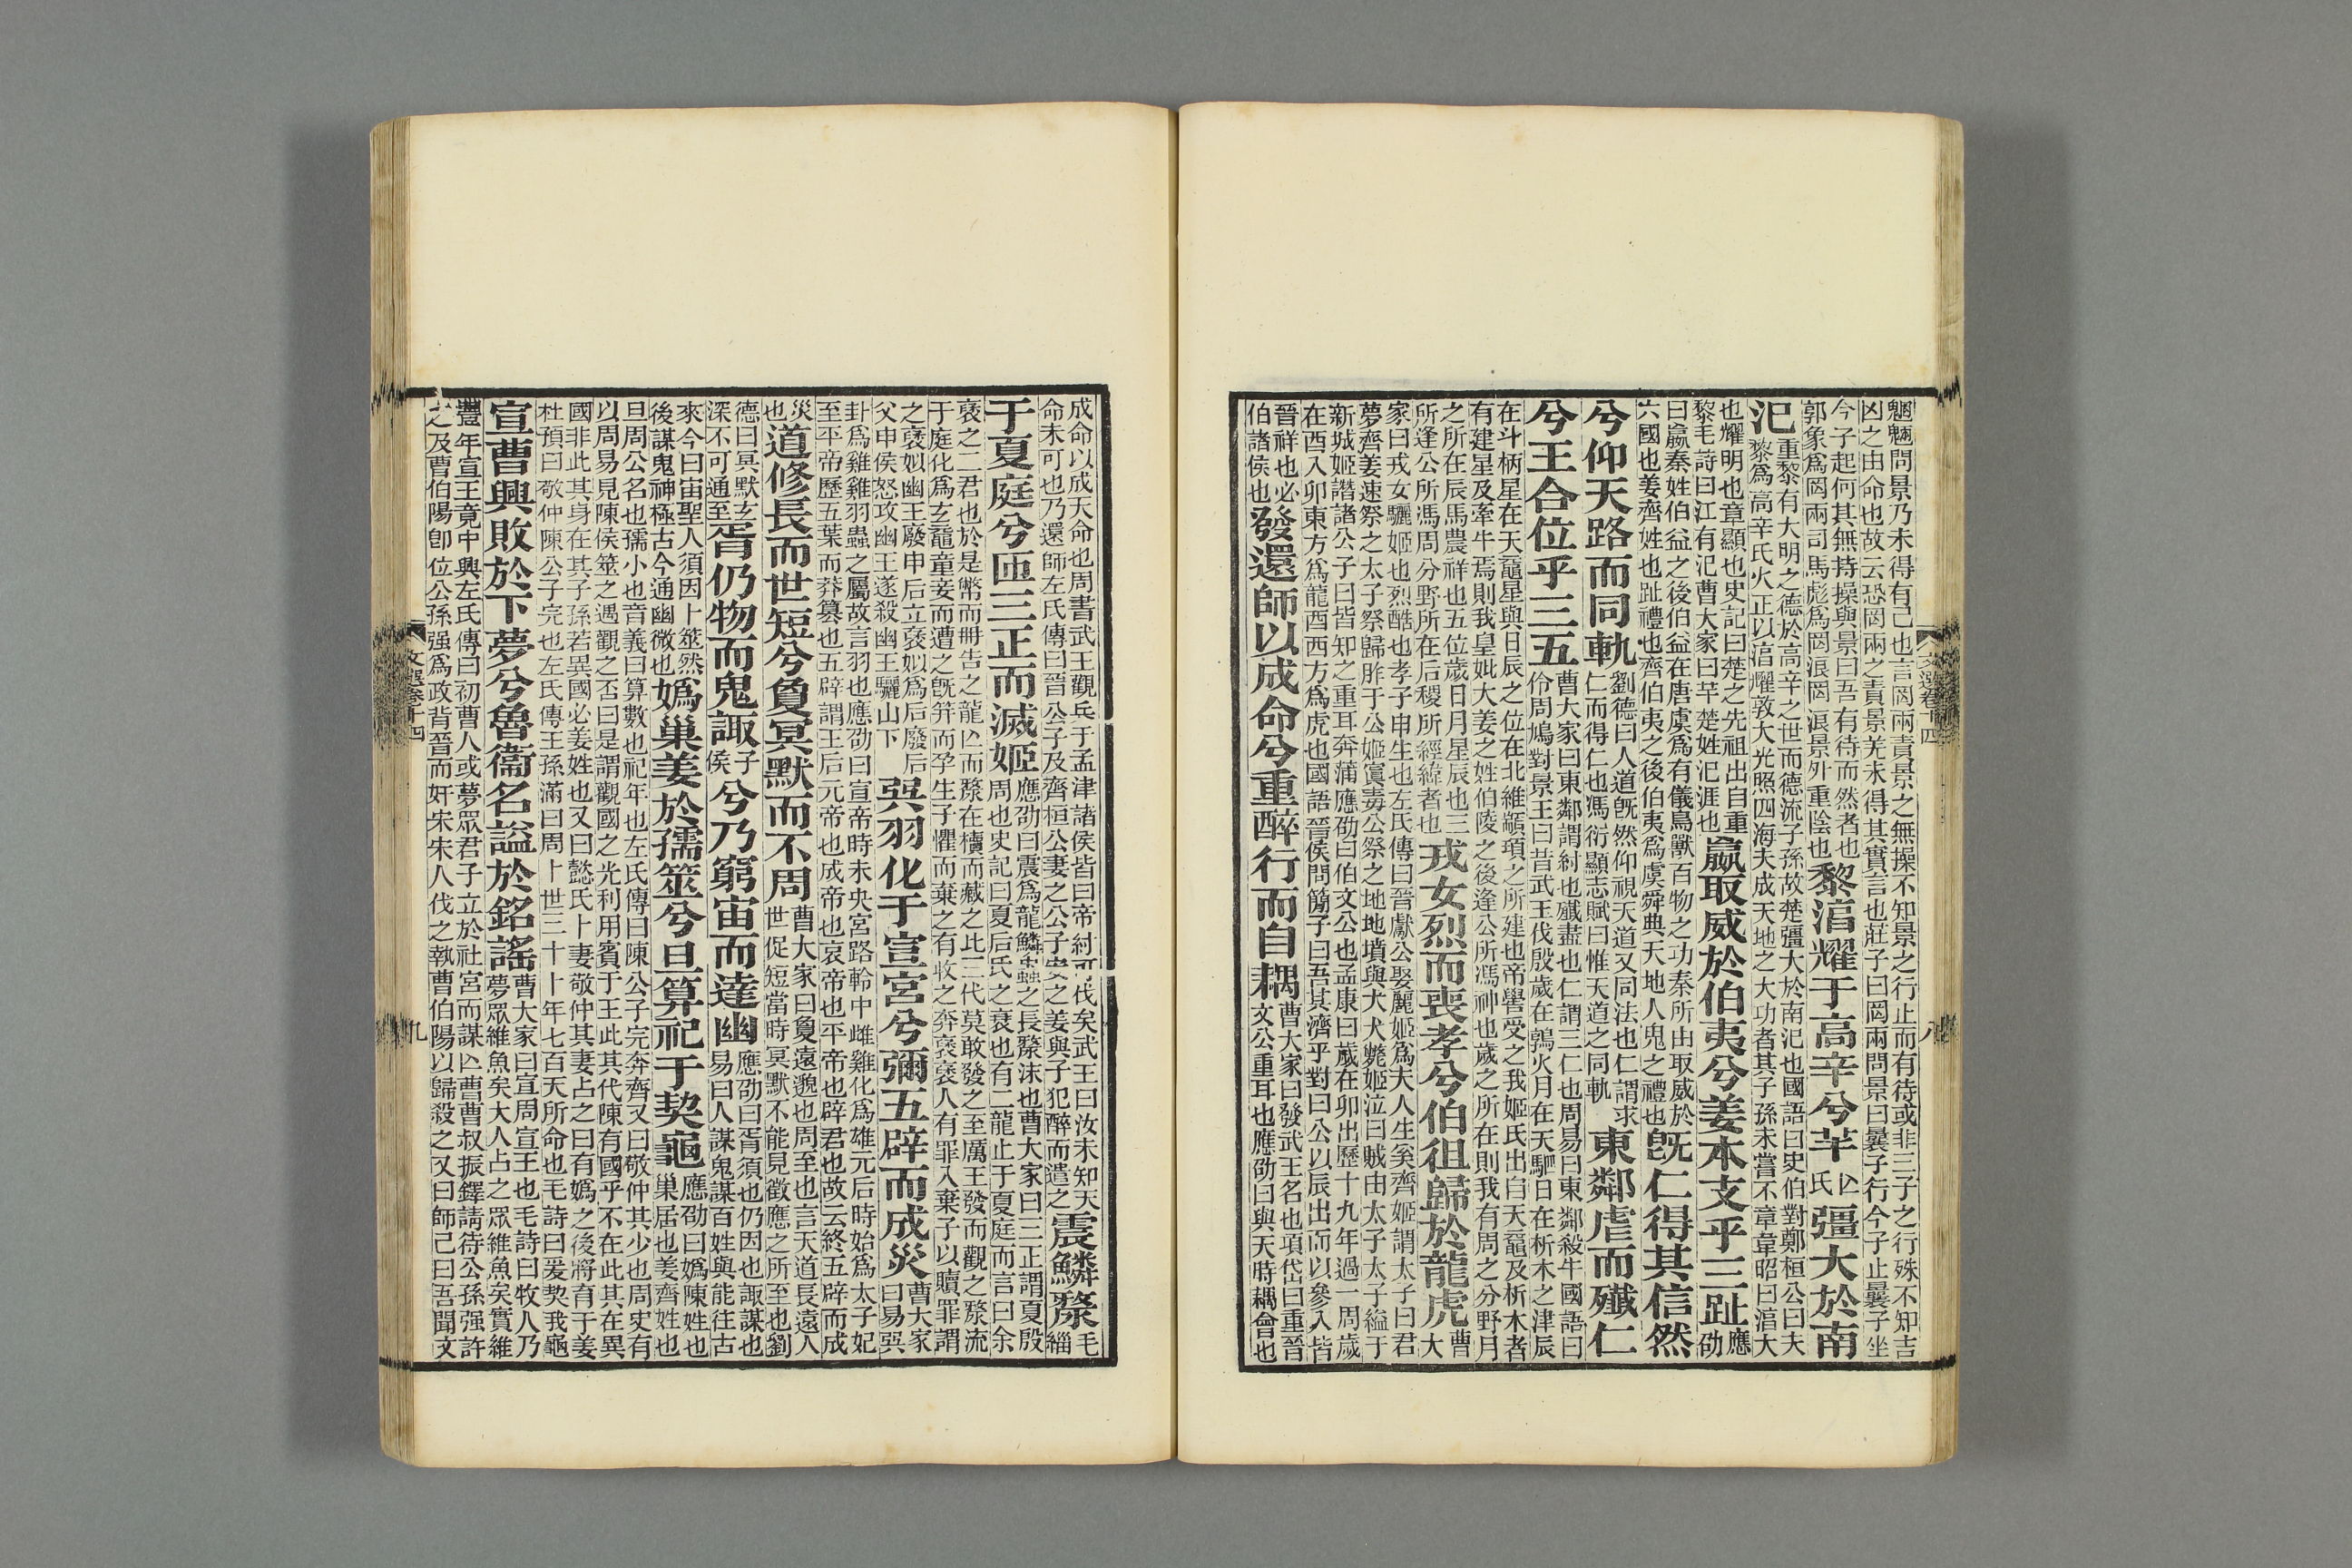 魍魎問景乃未得有已也言罔兩責景之無操不知景之行止而有待或非三子之行殊不知吉
凶之由命也故云恐罔兩之責景羌未得其實言也莊子曰罔兩問景曰曩子行今子止曩子坐
今子起何其無持操與景曰吾有待而然者也郭象爲罔兩司馬彪爲罔浪罔浪景外重陰也黎淳耀于高辛兮芈亡氏彊大於南
汜重黎有大明之德於高辛之世而德流子孫故楚彊大於南汜也國語曰史伯對鄭桓公曰夫黎爲高辛氏火正以淳耀敦大光照四海夫成天地之大功者其子孫未嘗不章韋昭曰淳大
也耀明也章顯也史記曰楚之先祖出自重黎毛詩曰江有汜曹大家曰芈楚姓汜涯也嬴取威於伯夷兮姜本支乎三趾應劭
曰嬴秦姓伯益之後伯益在唐虞爲有儀鳥獸百物之功秦所由取威於六國也姜齊姓也趾禮也齊伯夷之後伯夷爲虞舜典天天地人鬼之禮也旣仁得其信然
兮仰天路而同軌劉德曰人道旣然仰視天道又同法也仁謂求仁而得仁也馮衍顯志賦曰惟天道之同軌東鄰虐而殲仁
兮王合位乎三五曹大家曰東鄰謂紂也殲盡也仁謂三仁也周易曰東鄰殺牛國語曰伶周鳩對景王曰昔武王伐殷歲在鶉火月在天駟日在析木之津辰
在斗柄星在天黿星與日辰之位在北維顓頊之所建也帝嚳受之我姬氏出自天黿及析木者
有建星及牽牛焉則我皇妣大姜之姪伯陵之後逄公所馮神也歲之所在則我有周之分野月
之所在辰馬農祥也五位歲日月星辰也三所逢公所馮周分野所在后稷所經緯者也戎女烈而喪孝兮伯徂歸於龍虎曹大
家曰戎女驪姬也烈酷也孝子申生也左氏傳曰晉獻公娶麗姬爲夫人生奚齊姬謂太子曰君
夢齊姜速祭之太子祭歸胙于公姬寘毒公祭之地地墳與犬犬斃姬泣曰賊由太子太子縊于
新城姬譖諸公子曰皆知之重耳奔蒲應劭曰伯文公也孟康曰歲在卯出歷十九年過一周歲
在酉入卯東方爲龍酉西方爲虎也國語晉侯問簡子曰吾其濟乎對曰公以辰出而以參入皆
晉祥也必伯諸侯也發還師以成命兮重醉行而自耦曹大家曰發武王名也項岱曰重晉文公重耳也應劭曰與天時耦會也
文選卷十四
八
成命以成天命也周書武王觀兵于孟津諸侯皆曰帝紂可伐矣武王曰汝未知天命未可也乃還師左氏傳曰晉公子及齊齊桓公妻之公子安之姜與子犯醉而遣之震鱗漦毛緇
于夏庭兮匝三正而滅姬應劭曰震爲龍鱗蟲之長漦沫也曹大家曰三正謂夏殷周也史記曰夏后氏之衰也有二龍止于夏庭而言曰余
褒之二君也於是幣而冊告之龍亡而漦在櫝而藏之比三代莫敢發之至厲王發而觀之漦流
于庭化爲玄黿童妾而遭之旣笄而孕生子懼而棄之有收之奔褒褒人有罪入棄子以贖罪謂
之褒姒幽王廢申后立褒姒爲后廢后父申侯怒攻幽王遂殺幽王驪山下㢲羽化于宣宮兮彌五辟而成災曹大家曰易㢲
卦爲雞雞羽蟲之屬故言羽也應劭曰宣帝時未央宮路軨中雌雞化爲雄元后時始爲太子妃
至平帝歷五葉而莽篡也五辟謂王后元帝也成帝也哀帝也平帝也辟君也故云終五辟而成
災也道修長而世短兮夐冥默而不周曹大家曰夐遠邈也周至也言天道長遠人世促短當時冥默不能見徵應之所至也劉
德曰冥默玄深不可通至胥仍物而鬼諏子侯兮乃窮宙而達幽應劭曰胥須也仍因也諏謀也易曰人謀鬼謀百姓與能往古
來今曰宙聖人須因卜筮然後謀鬼神極古今通幽微也嬀巢姜於孺筮兮旦算祀于契龜應劭曰嬀陳姓也巢居也姜齊姓也
旦周公名也孺小也音義曰算數也祀年也左氏傳曰陳公子完奔齊又曰敬仲其少也周史有
以周易見陳侯筮之遇觀之否曰是謂觀國之光利用賓于王此其代陳有國乎不在此其在異
國非此其身在其子孫若異國必姜姓也又曰懿氏卜妻敬仲其妻占之曰有嬀之後將育于姜
杜預曰敬仲陳公子完也左氏傳王孫滿曰周卜世三十卜年七百天所命也毛詩曰爰契我龜
宣曹興敗於下夢兮魯衞名謚於銘謠曹大家曰宣周宣王也毛詩曰牧人乃夢眾維魚矣大人占之眾維魚矣實維
豐年宣王竟中興左氏傳曰初曹人或夢眾君子立於社宮而謀亡曹曹叔振鐸請待公孫强許
之及曹伯陽卽位公孫强爲政背晉而奸宋宋人伐之執曹伯陽以歸殺之又曰師己曰吾聞文
文選卷十四
九